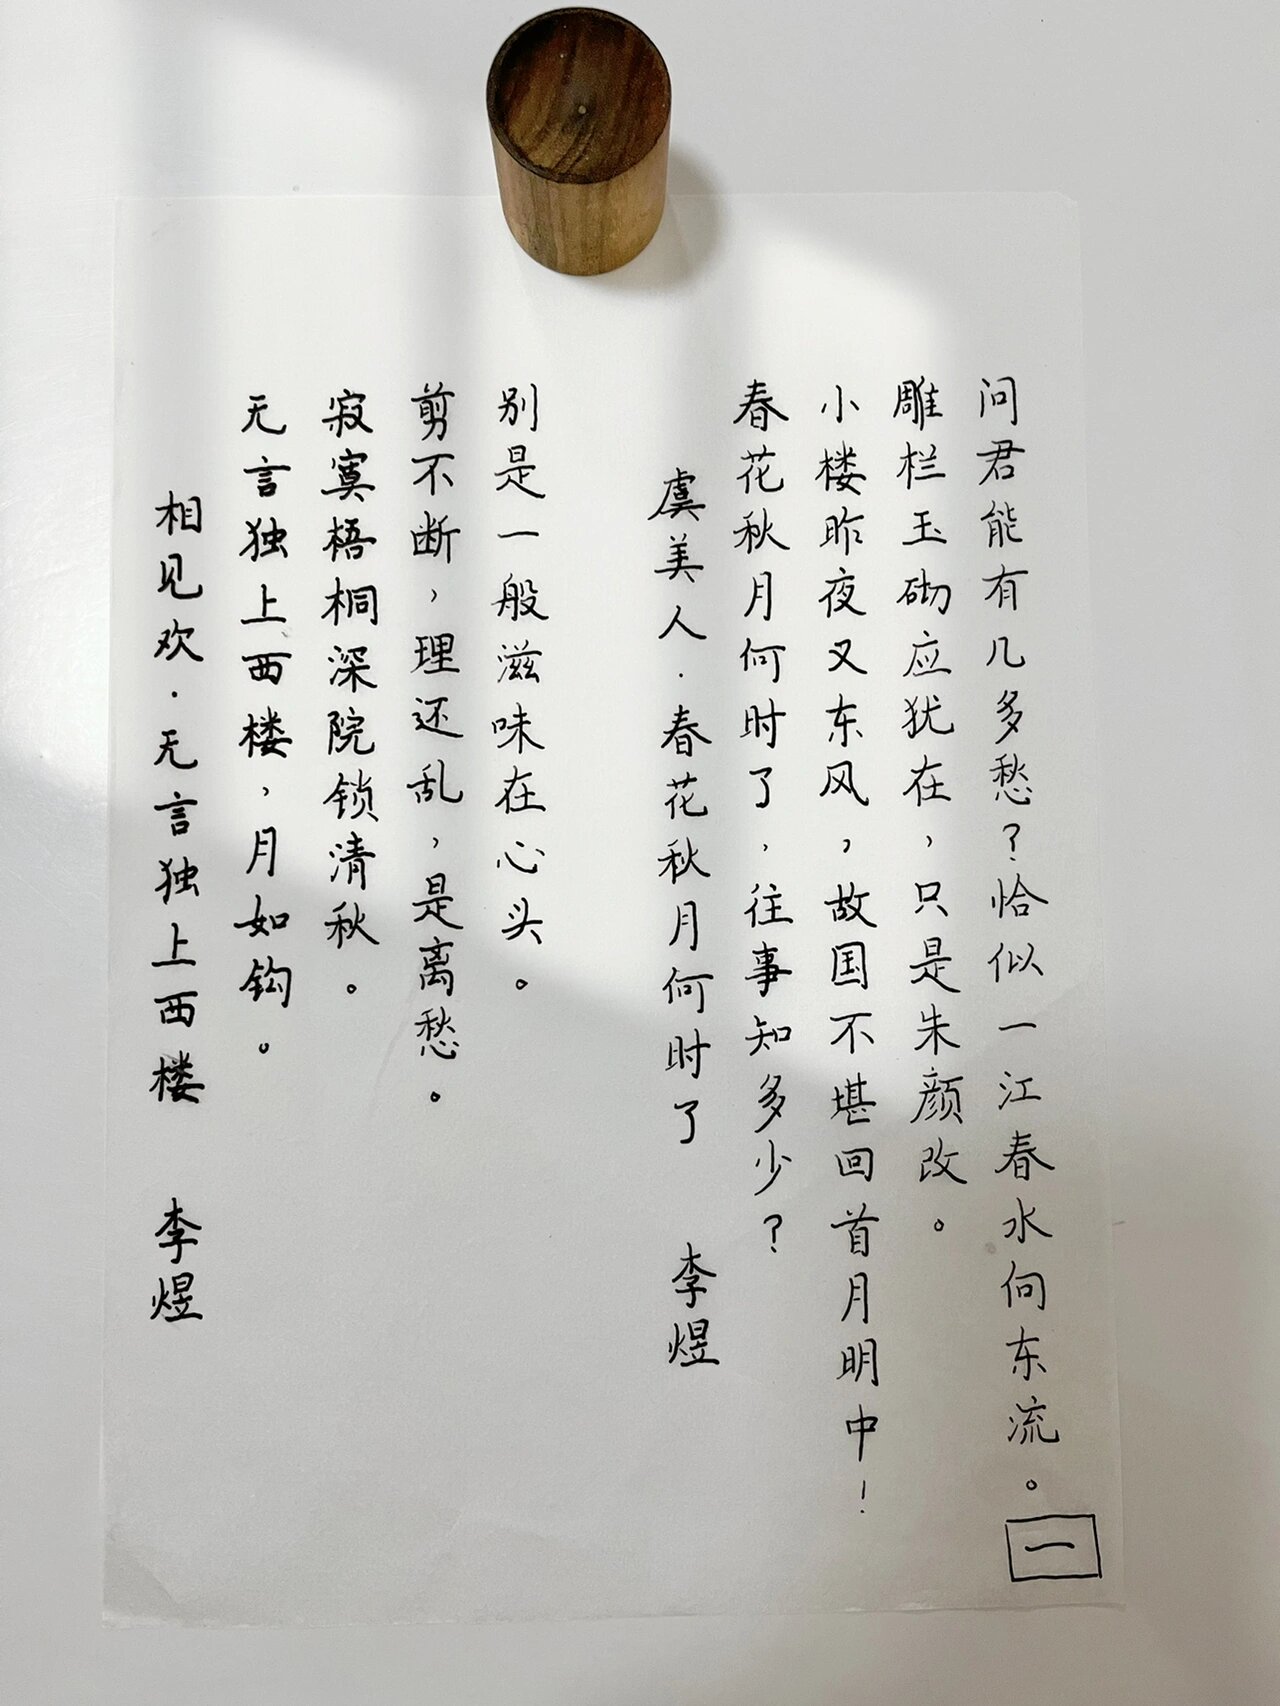 相见欢·无言独上西楼 李煜
无言独上西楼，月如钩。
寂寞梧桐深院锁清秋。
剪不断，理还乱，是离愁。
别是一般滋味在心头。
虞美人·春花秋月何时了 李煜
春花秋月何时了，往事知多少？
小楼昨夜又东风，故国不堪回首月明中！
雕栏玉砌应犹在，只是朱颜改。
问君能有几多愁？恰似一江春水向东流。
一